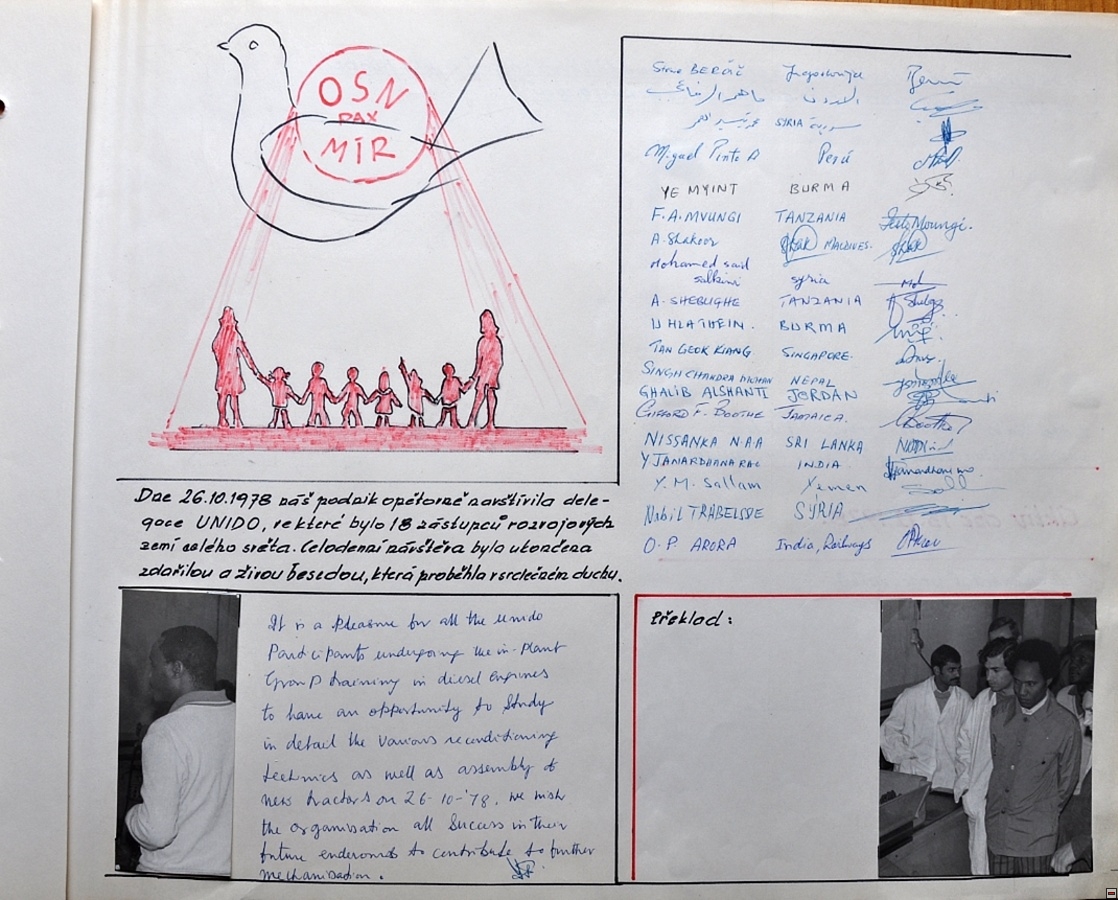 OSN
PAX
MÍR
Dne 26.10.1978 náš podnik opětovně navštívila dele-
gace UNIDO, ve které bylo 18 zástupců rozvojových
zemí celého světa. Celodenní návštěva byla ukončena
zdařilou a živou besedou, která proběhla v srdečném duchu.
It is a pleasure for all the unido
Participants undergoing the in-plant
Group training in diesel engines
to have an opportunity to study
in detail the various reconditioning
technics as well as assembly of
new tractors on 26-10-'78. we wish
the organisation all success in their
future endeavours to contribute to further
mechanisation.
BERČIČ Jugoslavija
ماهر الرفاعي الأردن
SYRIA سورية
Miguel Pinto Perú
YE MYINT BURMA
F.A. MVUNGI TANZANIA
A. Shakoor MALDIVES.
Mohamed said
salkini syria
A. SHEBUGHE TANZANIA
U HLA THEIN. BURMA
TAN GEOK KIANG SINGAPORE.
SINGH CHANDRA MOHAN NEPAL
GHALIB ALSHANTI JORDAN
GIFFORD F. BOOTHE JAMAICA.
NISSANKA N.A.A SRI LANKA
Y JANARDHANA RAO INDIA
Y. M. Sallam Yemen
Nabil TRABELSIE SYRIA
O. P. ARORA India, Railways
Překlad: